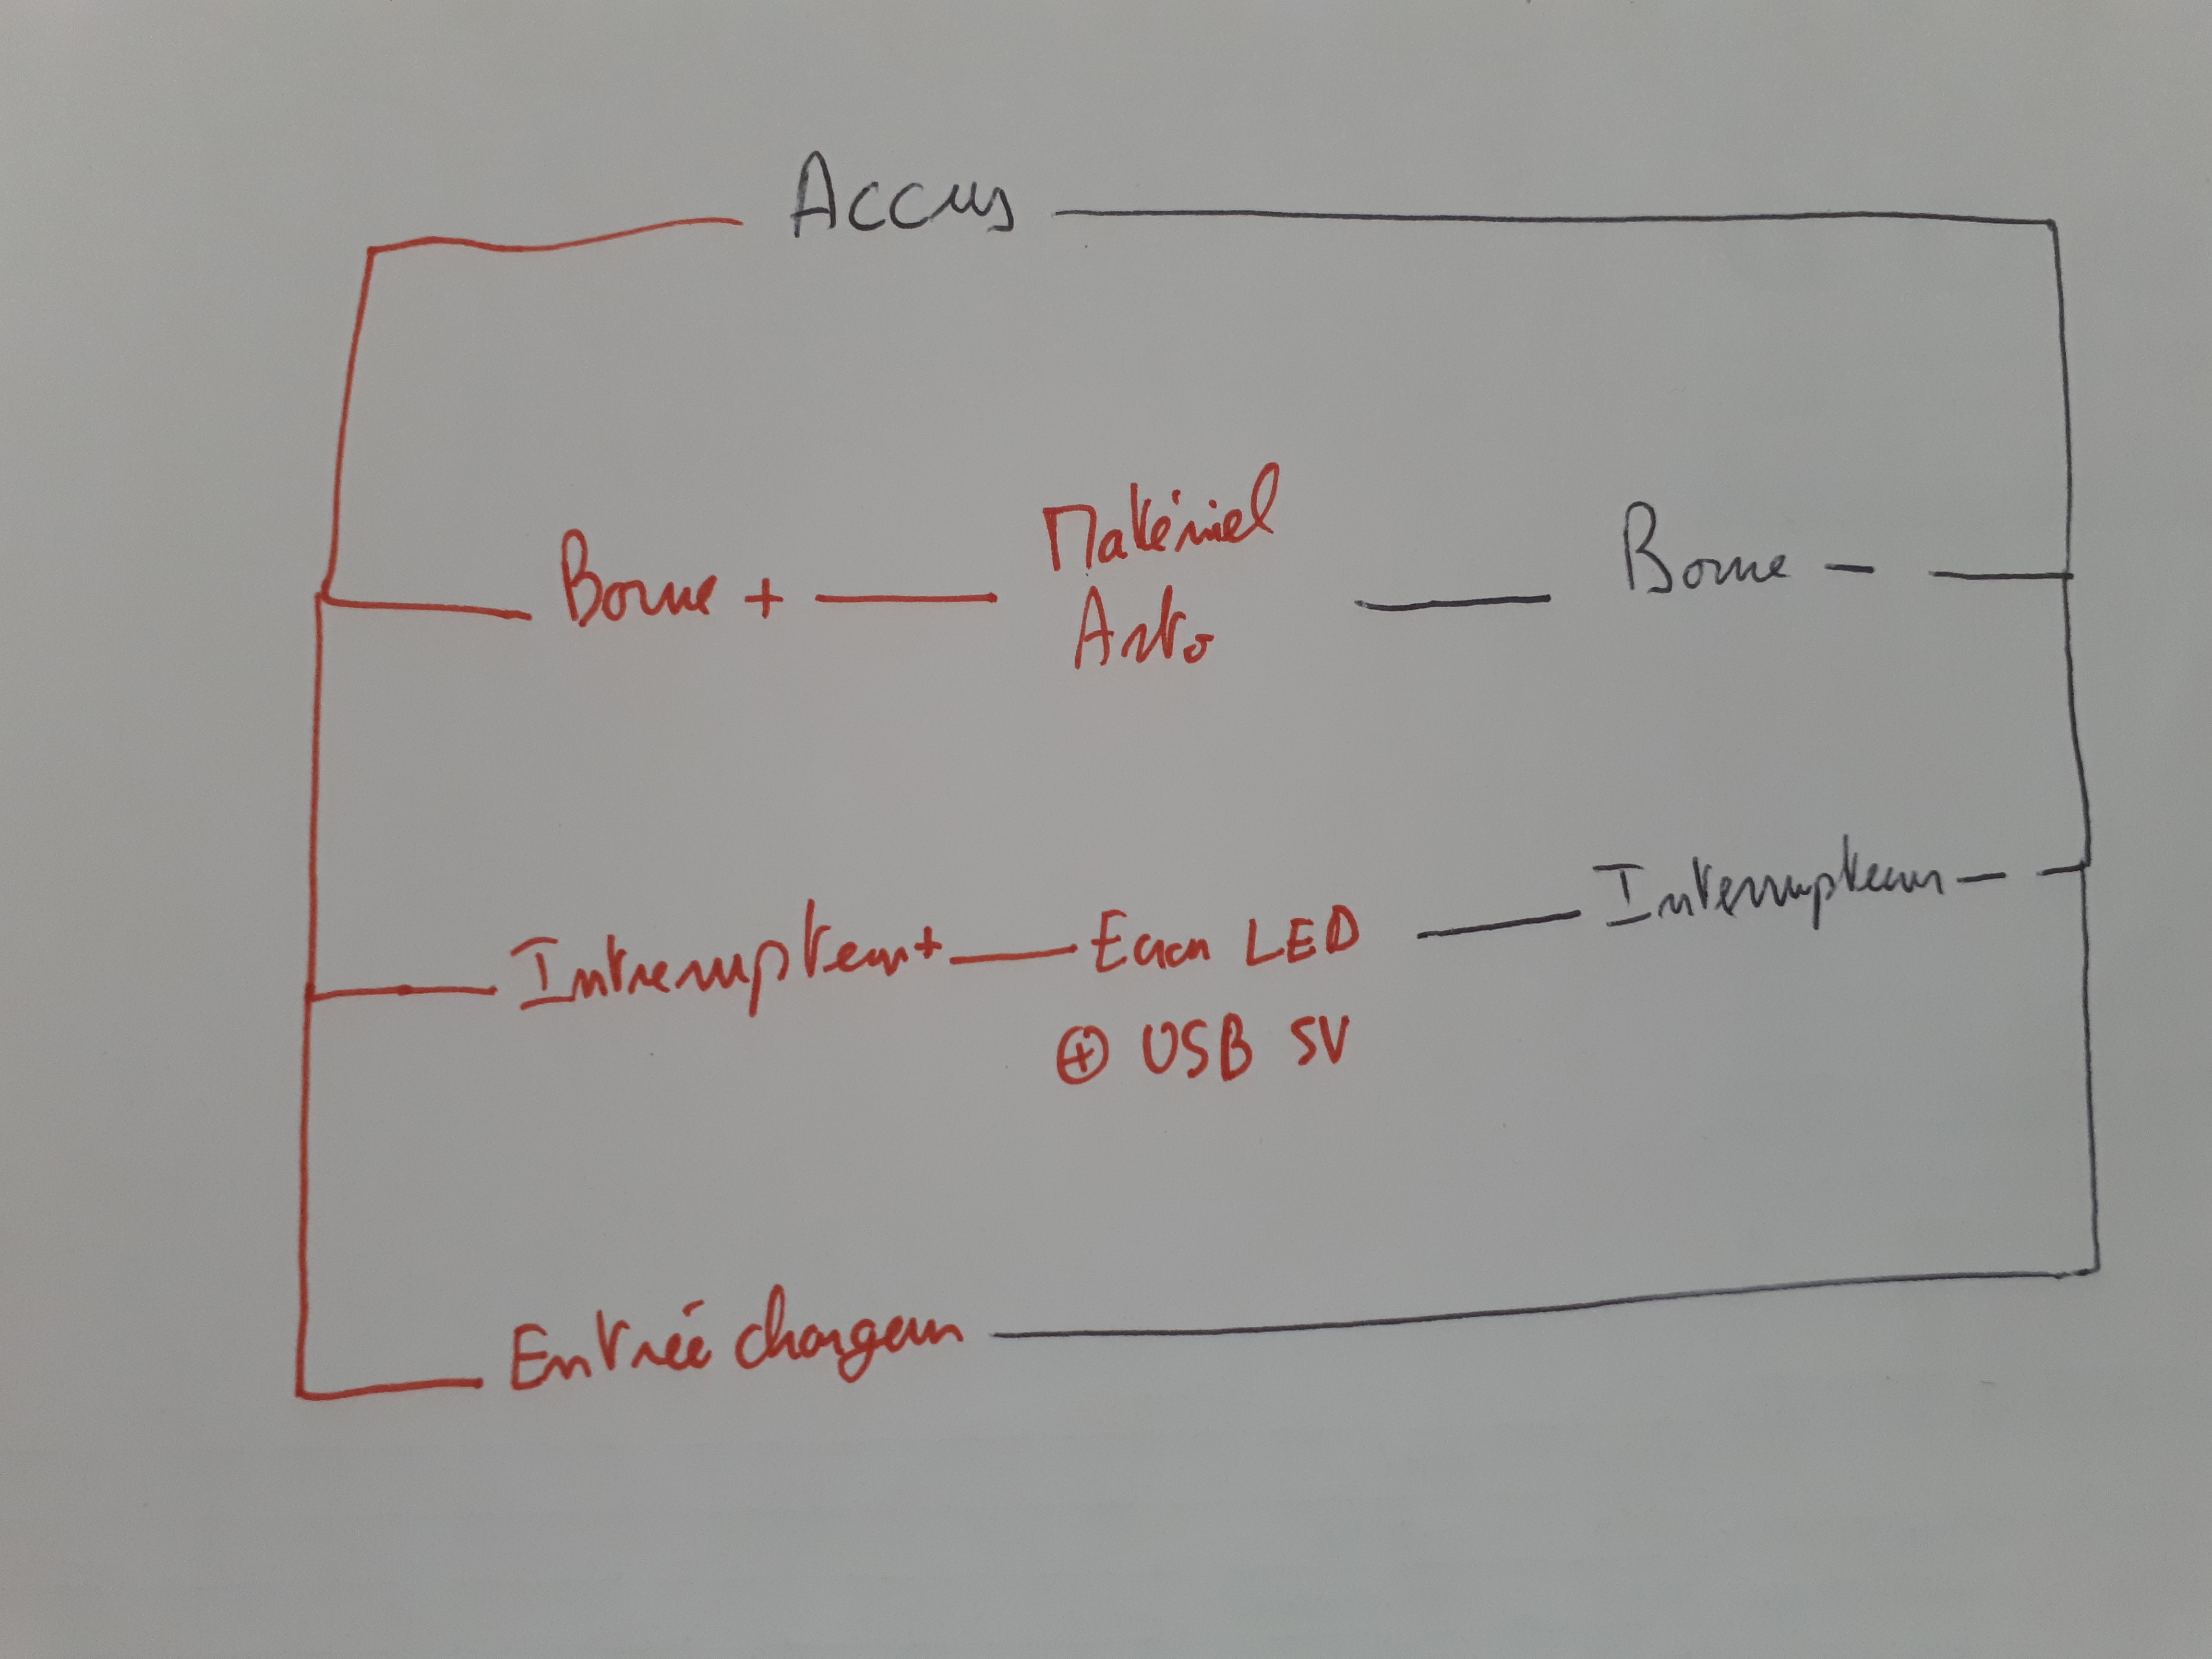 Accus
Borne + Matériel Astro Borne -
Interrupteur + Ecran LED Interrupteur -
⊕ USB 5V
Entrée chargeur